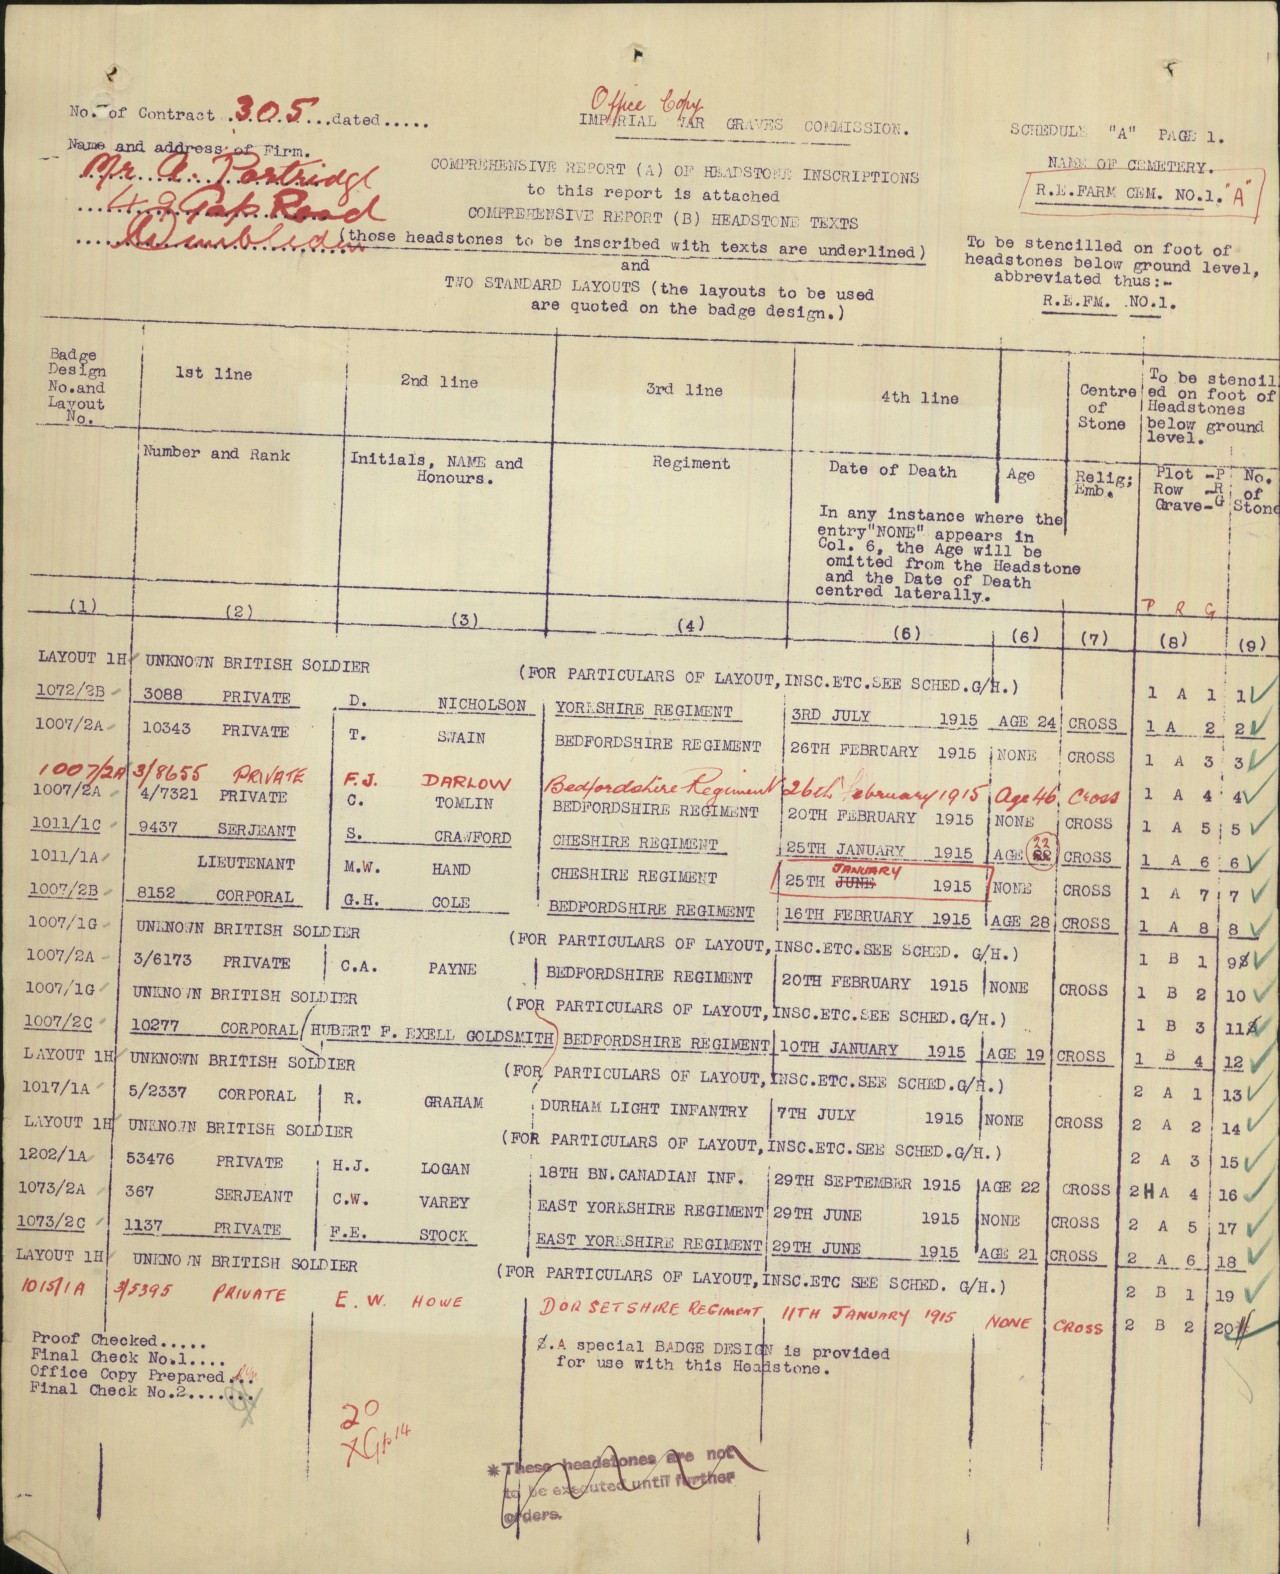 No. of Contract .305..........dated.....
Office Copy
IMPERIAL WAR GRAVES COMMISSION.
SCHEDULE "A" PAGE 1.
Name and address of Firm.
Mr A. Partridge
Road
Wimbledon
COMPREHENSIVE REPORT (A) OF HEADSTONE INSCRIPTIONS
to this report is attached
COMPREHENSIVE REPORT (B) HEADSTONE TEXTS
(those headstones to be inscribed with texts are underlined)
and
TWO STANDARD LAYOUTS (the layouts to be used
are quoted on the badge design.)
NAME OF CEMETERY.
R.E.FARM CEM. NO.1. "A"
To be stencilled on foot of
headstones below ground level,
abbreviated thus:-
R.E.FM. NO.1.
Badge
Design
No.and
Layout
No.
1st line
2nd line
3rd line
4th line
Centre
of
Stone
To be stencil
ed on foot of
Headstones
below ground
level.
Number and Rank
Initials, NAME and
Honours.
Regiment
Date of Death
Age
Relig;
Emb.
Plot -P
Row -R
Grave-G
No.
of
Stone
In any instance where the
entry"NONE" appears in
Col. 6, the Age will be
omitted from the Headstone
and the Date of Death
centred laterally.
P R G
(1) (2) (3) (4) (6) (6) (7) (8) (9)
LAYOUT 1H UNKNOWN BRITISH SOLDIER (FOR PARTICULARS OF LAYOUT,INSC.ETC.SEE SCHED.G/H.) 1 A 1 1
1072/2B 3088 PRIVATE D. NICHOLSON YORKSHIRE REGIMENT 3RD JULY 1915 AGE 24 CROSS 1 A 2 2
1007/2A 10343 PRIVATE T. SWAIN BEDFORDSHIRE REGIMENT 26TH FEBRUARY 1915 NONE CROSS 1 A 3 3
1007/2A 3/8655 PRIVATE F.J. DARLOW Bedfordshire Regiment 26th February 1915 Age 46 Cross 1 A 4 4
1007/2A 4/7321 PRIVATE C. TOMLIN BEDFORDSHIRE REGIMENT 20TH FEBRUARY 1915 NONE CROSS 1 A 5 5
1011/1C 9437 SERJEANT S. CRAWFORD CHESHIRE REGIMENT 25TH JANUARY 1915 AGE 22 CROSS 1 A 6 6
1011/1A LIEUTENANT M.W. HAND CHESHIRE REGIMENT 25TH JUNE JANUARY 1915 NONE CROSS 1 A 7 7
1007/2B 8152 CORPORAL G.H. COLE BEDFORDSHIRE REGIMENT 16TH FEBRUARY 1915 AGE 28 CROSS 1 A 8 8
1007/1G UNKNOWN BRITISH SOLDIER (FOR PARTICULARS OF LAYOUT,INSC.ETC.SEE SCHED. G/H.) 1 B 1 9
1007/2A 3/6173 PRIVATE C.A. PAYNE BEDFORDSHIRE REGIMENT 20TH FEBRUARY 1915 NONE CROSS 1 B 2 10
1007/1G UNKNOWN BRITISH SOLDIER (FOR PARTICULARS OF LAYOUT,INSC.ETC.SEE SCHED.G/H.) 1 B 3 11
1007/2C 10277 CORPORAL HUBERT F. EXELL GOLDSMITH BEDFORDSHIRE REGIMENT 10TH JANUARY 1915 AGE 19 CROSS 1 B 4 12
LAYOUT 1H UNKNOWN BRITISH SOLDIER (FOR PARTICULARS OF LAYOUT,INSC.ETC.SEE SCHED.G/H.) 2 A 1 13
1017/1A 5/2337 CORPORAL R. GRAHAM DURHAM LIGHT INFANTRY 7TH JULY 1915 NONE CROSS 2 A 2 14
LAYOUT 1H UNKNOWN BRITISH SOLDIER (FOR PARTICULARS OF LAYOUT,INSC.ETC.SEE SCHED.G/H.) 2 A 3 15
1202/1A 53476 PRIVATE H.J. LOGAN 18TH BN.CANADIAN INF. 29TH SEPTEMBER 1915 AGE 22 CROSS 2 A 4 16
1073/2A 367 SERJEANT C.W. VAREY EAST YORKSHIRE REGIMENT 29TH JUNE 1915 NONE CROSS 2 A 5 17
1073/2C 1137 PRIVATE F.E. STOCK EAST YORKSHIRE REGIMENT 29TH JUNE 1915 AGE 21 CROSS 2 A 6 18
LAYOUT 1H UNKNOWN BRITISH SOLDIER (FOR PARTICULARS OF LAYOUT,INSC.ETC SEE SCHED. G/H.) 2 B 1 19
1015/1A 3/5395 PRIVATE E.W. HOWE DORSETSHIRE REGIMENT 11TH JANUARY 1915 NONE CROSS 2 B 2 20
Proof Checked.....
Final Check No.1....
Office Copy Prepared...
Final Check No.2.......
.A special BADGE DESIGN is provided
for use with this Headstone.
20
*These headstones are not
to be executed until further
orders.